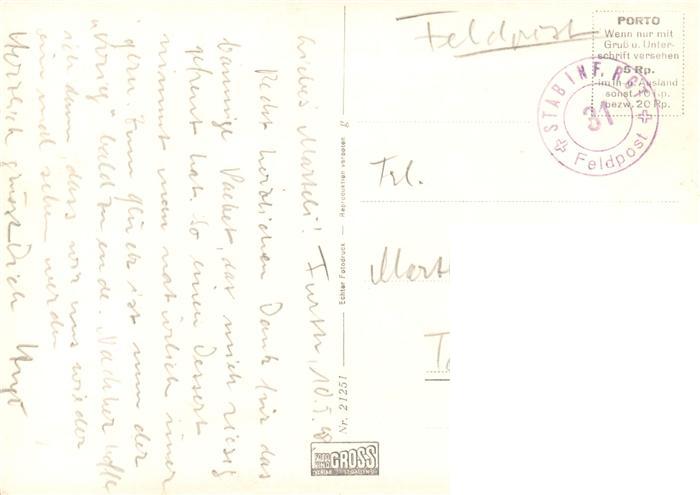 Feldpost
PORTO
Wenn nur mit
Gruß u. Unter-
schrift versehen
5 Rp.
im In- u. Ausland
sonst 10 Rp.
bezw. 20 Rp.
STAB INF. RGT.
31
Feldpost
Frl.
Liebes Martheli! Furth, 10.5.
Recht herzlichen Dank für das
Packet, das mich riesig
gefreut hat. So einen Dessert
nimmt man natürlich immer
gern. Zum Glück ist nun der
bald zu ende. Nachher hoffe
ich dann, dass wir uns wieder
einmal sehen werden
Herzlich grüsst Dich
Nr. 21251
Echter Fotodruck — Reproduktion verboten
GROSS